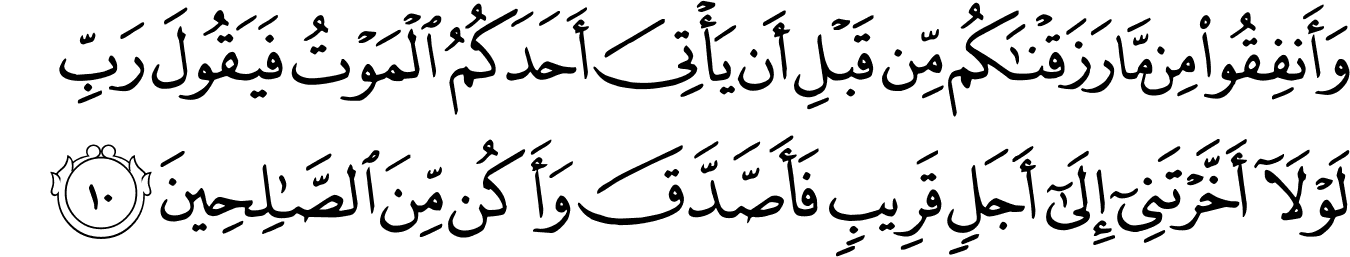 وَأَنفِقُوا۟ مِن مَّا رَزَقْنَـٰكُم مِّن قَبْلِ أَن يَأْتِىَ أَحَدَكُمُ ٱلْمَوْتُ فَيَقُولَ رَبِّ
لَوْلَآ أَخَّرْتَنِىٓ إِلَىٰٓ أَجَلٍ قَرِيبٍ فَأَصَّدَّقَ وَأَكُن مِّنَ ٱلصَّـٰلِحِينَ ١٠